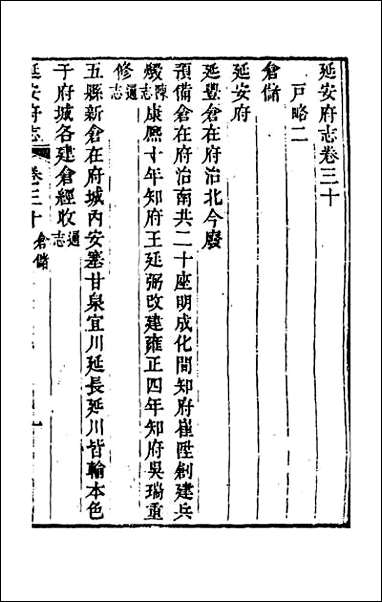 延安府志卷三十
戶略二
倉儲
延安府
延豐倉在府治北今廢
預備倉在府治南共二十座明成化間知府崔陞創建兵
燬陳志康熙十年知府王延弼改建雍正四年知府吳瑞重
修通志
五縣新倉在府城內安塞甘泉宜川延長延川皆輸本色
于府城各建倉經收通志
延安府志 卷三十 倉儲 一